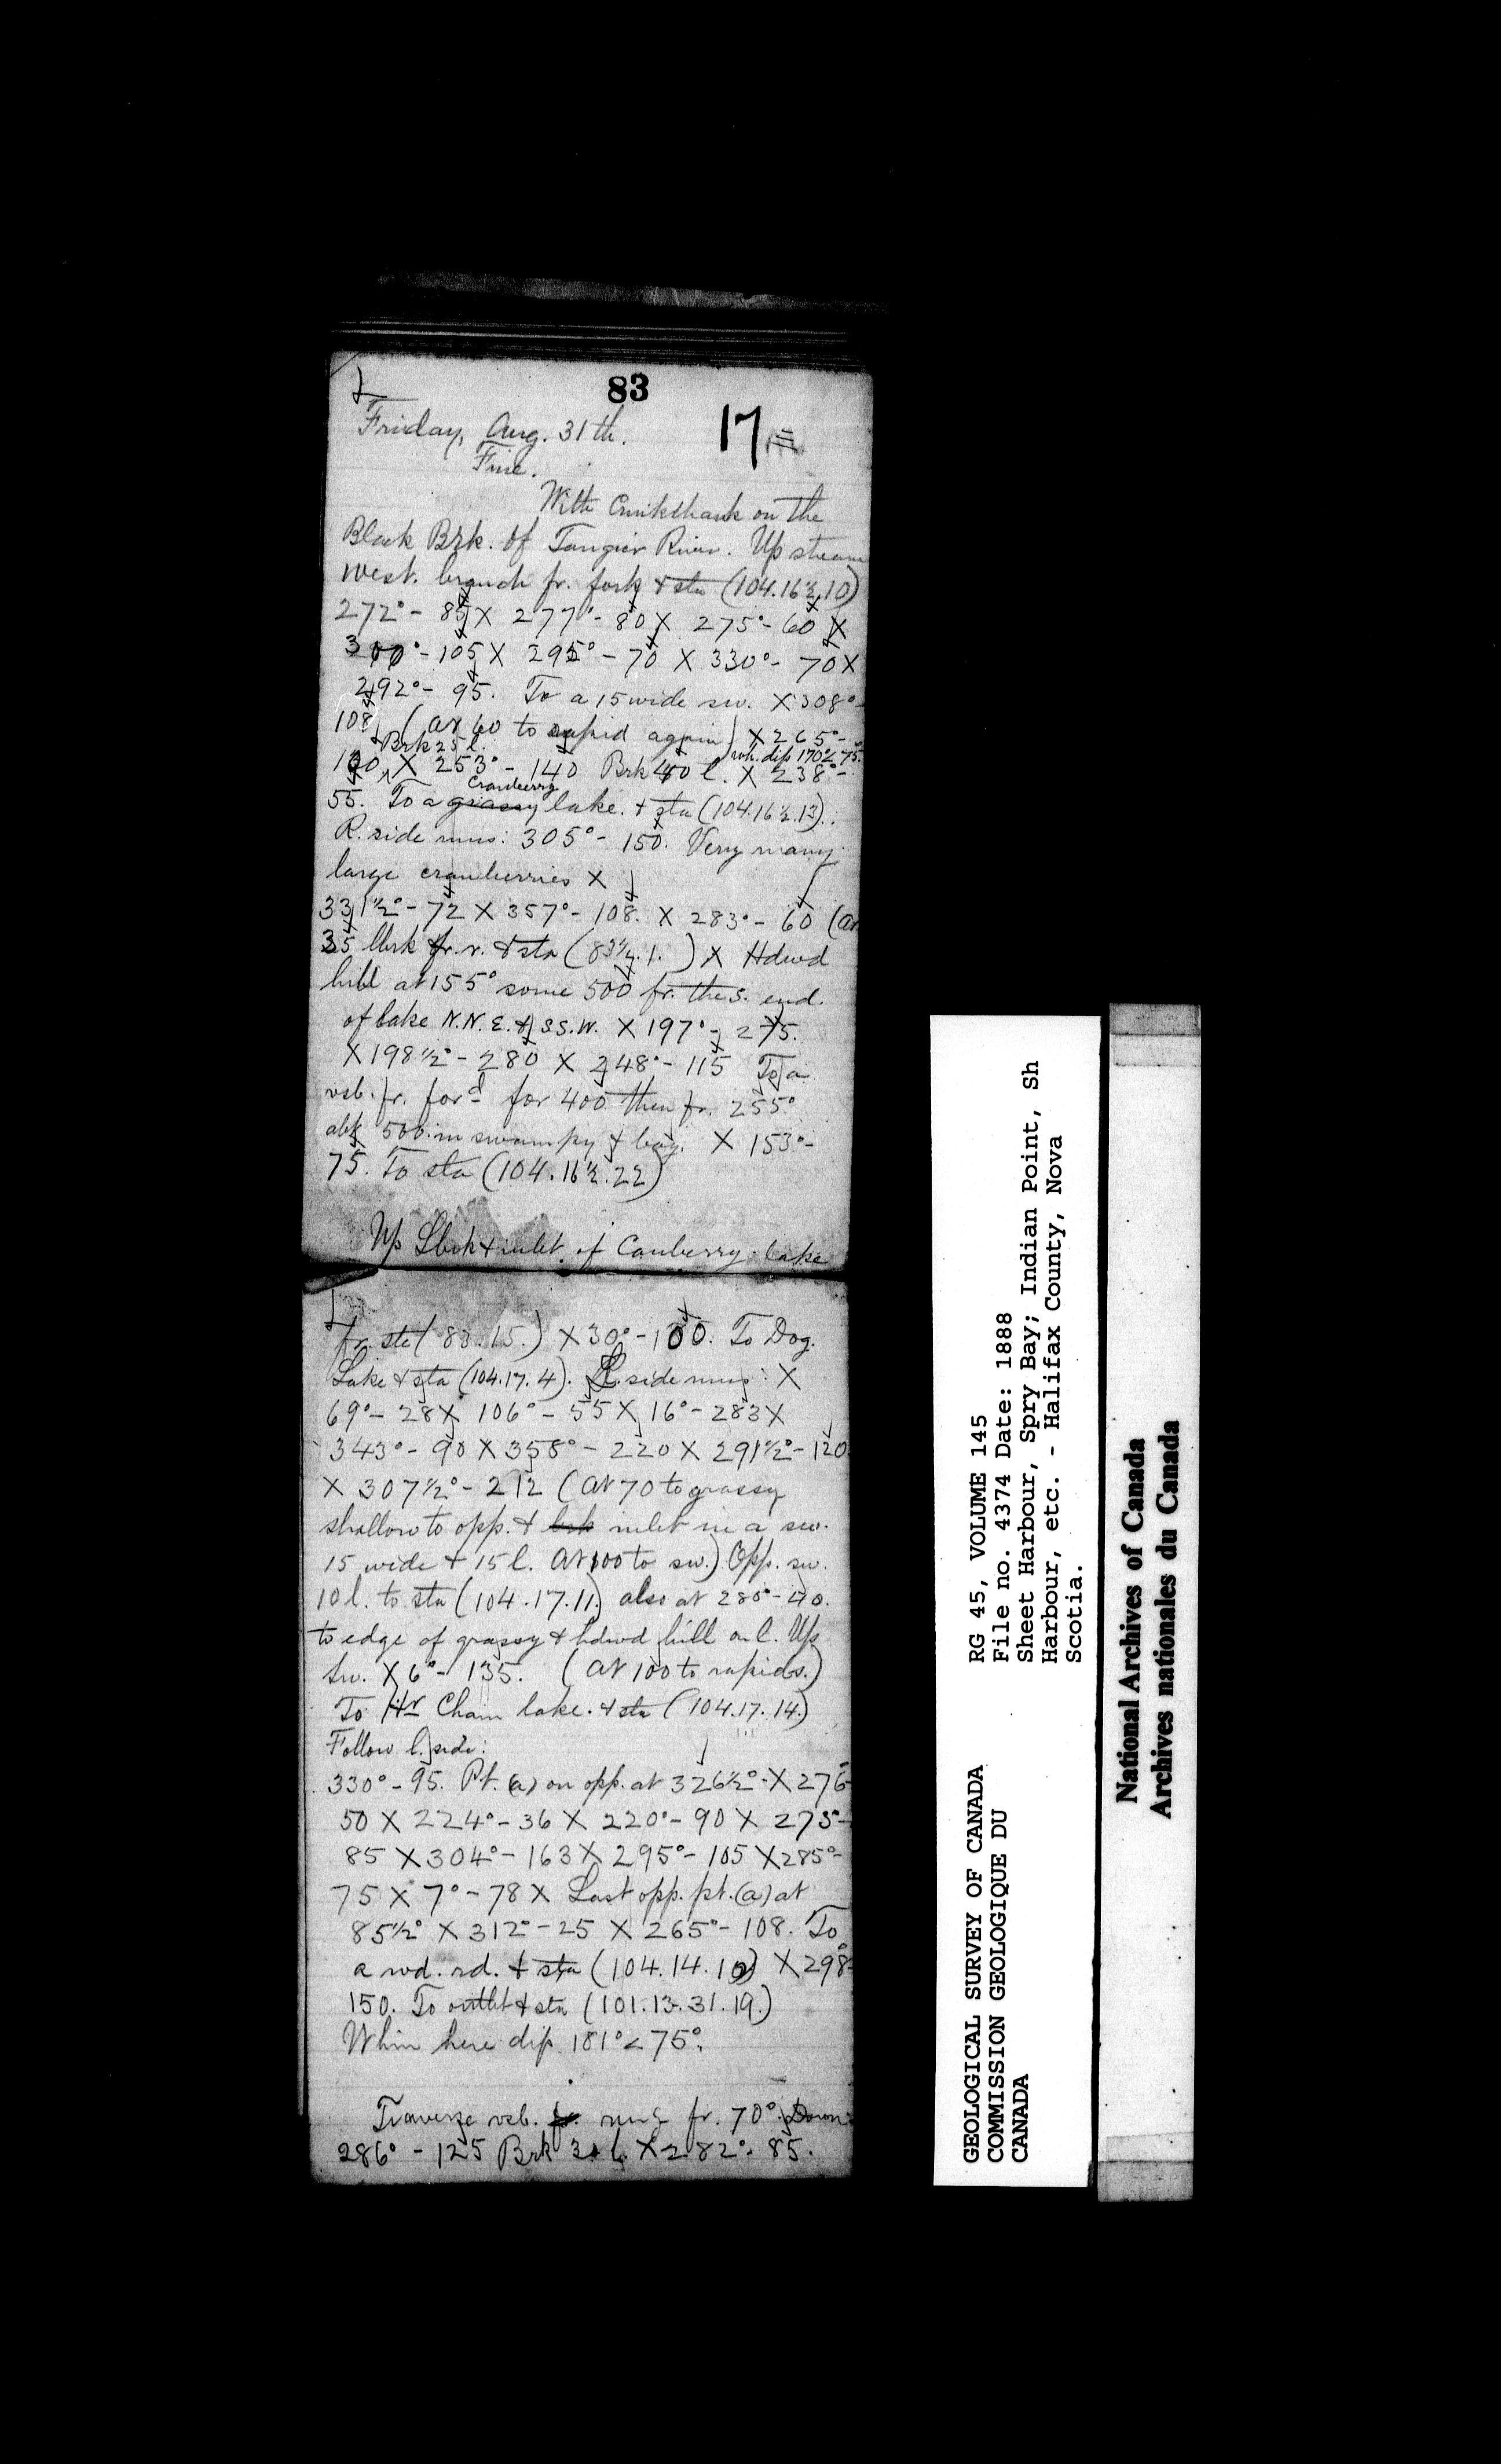 83
17
Friday, Aug. 31th.
Fine.
With Cruikshank on the
Black Brk. of Tangier River. Up stream
West. branch fr. fork & sta (104.16½.10)
272° - 85 X 277° - 80 X 275° - 60 X
300° - 105 X 295° - 70 X 330° - 70 X
292° - 95. To a 15 wide sw. X 308° -
108 (At 60 to rapid again) X 265° -
Brk 25 l. wh. dip 170° < 75°.
100 X 253° - 140 Brk 40 l. X 238° -
Cranberry
55. To a grassy lake. & sta (104.16½.13).
R. side runs: 305° - 150. Very many
large cranberries X
331½° - 72 X 357° - 108. X 283° - 60 (At
35 lbrk fr. r. & sta (83½.1.) X Hdwd
hill at 155° some 500 fr. the s. end.
of lake N.N.E. & S.S.W. X 197° - 275.
X 198½° - 280 X 248° - 115 To a
vsb. fr. ford for 400 then fr. 255°
abt 500. in swampy & bog. X 153° -
75. To sta (104.16½.22)
Up Lbrk & inlet of Canberry lake
fr. sta (83.15.) X 30° - 100. To Dog.
Lake & sta (104.17.4). R. side runs: X
69° - 28 X 106° - 55 X 16° - 283 X
343° - 90 X 358° - 220 X 291½° - 120
X 307½° - 212 (At 70 to grassy
shallow to opp. & brk inlet in a sw.
15 wide & 15 l. At 100 to sw.) Opp. sw.
10 l. to sta (104.17.11.) also at 280° - 40.
to edge of grassy & hdwd hill on l. Up
sw. X 6° - 135. (At 100 to rapids.)
To Hr Cham lake. & sta (104.17.14.)
Follow l. side:
330° - 95. Pt. (a) on opp. at 326½° - X 276° -
50 X 224° - 36 X 220° - 90 X 273° -
85 X 304° - 163 X 295° - 105 X 285° -
75 X 7° - 78 X Last opp. pt. (a) at
85½° X 312° - 25 X 265° - 108. To
a wd. rd. & sta (104.14.10) X 298° -
150. To outlet & sta (101.13.31.19.)
Whin here dip 181° < 75°.
Traverse vsb. fr. rung fr. 70°. Down
286° - 125 Brk 30 l. X 282° - 85.
GEOLOGICAL SURVEY OF CANADA
COMMISSION GEOLOGIQUE DU
CANADA
RG 45, VOLUME 145
File no. 4374 Date: 1888
Sheet Harbour, Spry Bay; Indian Point, Sh
Harbour, etc. - Halifax County, Nova
Scotia.
National Archives of Canada
Archives nationales du Canada